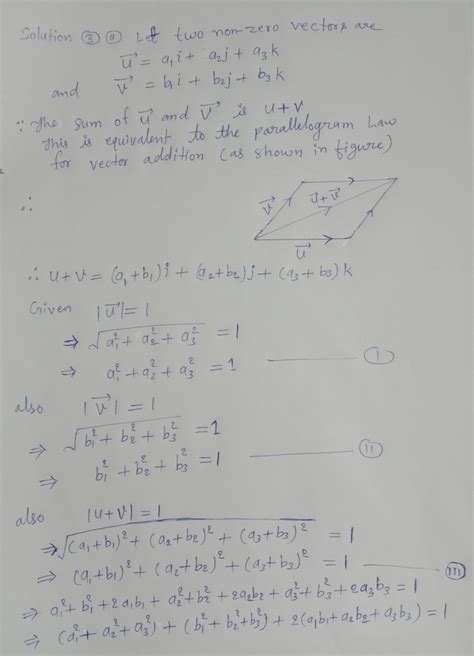 Solution ③ ⓐ Let two non-zero vectors are
u⃗ = a₁i + a₂j + a₃k
and v⃗ = b₁i + b₂j + b₃k
∵ The sum of u⃗ and v⃗ is u+v
This is equivalent to the parallelogram Law
for vector addition (as shown in figure)
∴
v⃗ u⃗+v⃗
u⃗
∴ u+v = (a₁+b₁)i + (a₂+b₂)j + (a₃+b₃)k
Given |u⃗| = 1
⇒ √(a₁² + a₂² + a₃²) = 1
⇒ a₁² + a₂² + a₃² = 1 —— Ⓘ
also |v⃗| = 1
⇒ √(b₁² + b₂² + b₃²) = 1
⇒ b₁² + b₂² + b₃² = 1 —— (II)
also |u+v| = 1
⇒ √((a₁+b₁)² + (a₂+b₂)² + (a₃+b₃)²) = 1
⇒ (a₁+b₁)² + (a₂+b₂)² + (a₃+b₃)² = 1 —— (III)
⇒ a₁² + b₁² + 2a₁b₁ + a₂² + b₂² + 2a₂b₂ + a₃² + b₃² + 2a₃b₃ = 1
⇒ (a₁² + a₂² + a₃²) + (b₁² + b₂² + b₃²) + 2(a₁b₁ + a₂b₂ + a₃b₃) = 1